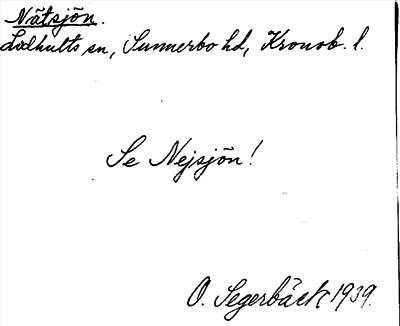 Nätsjön.
Lidhults sn, Sunnerbo hd, Kronob. l.
Se Nejsjön!
O. Segerbäck 1939.